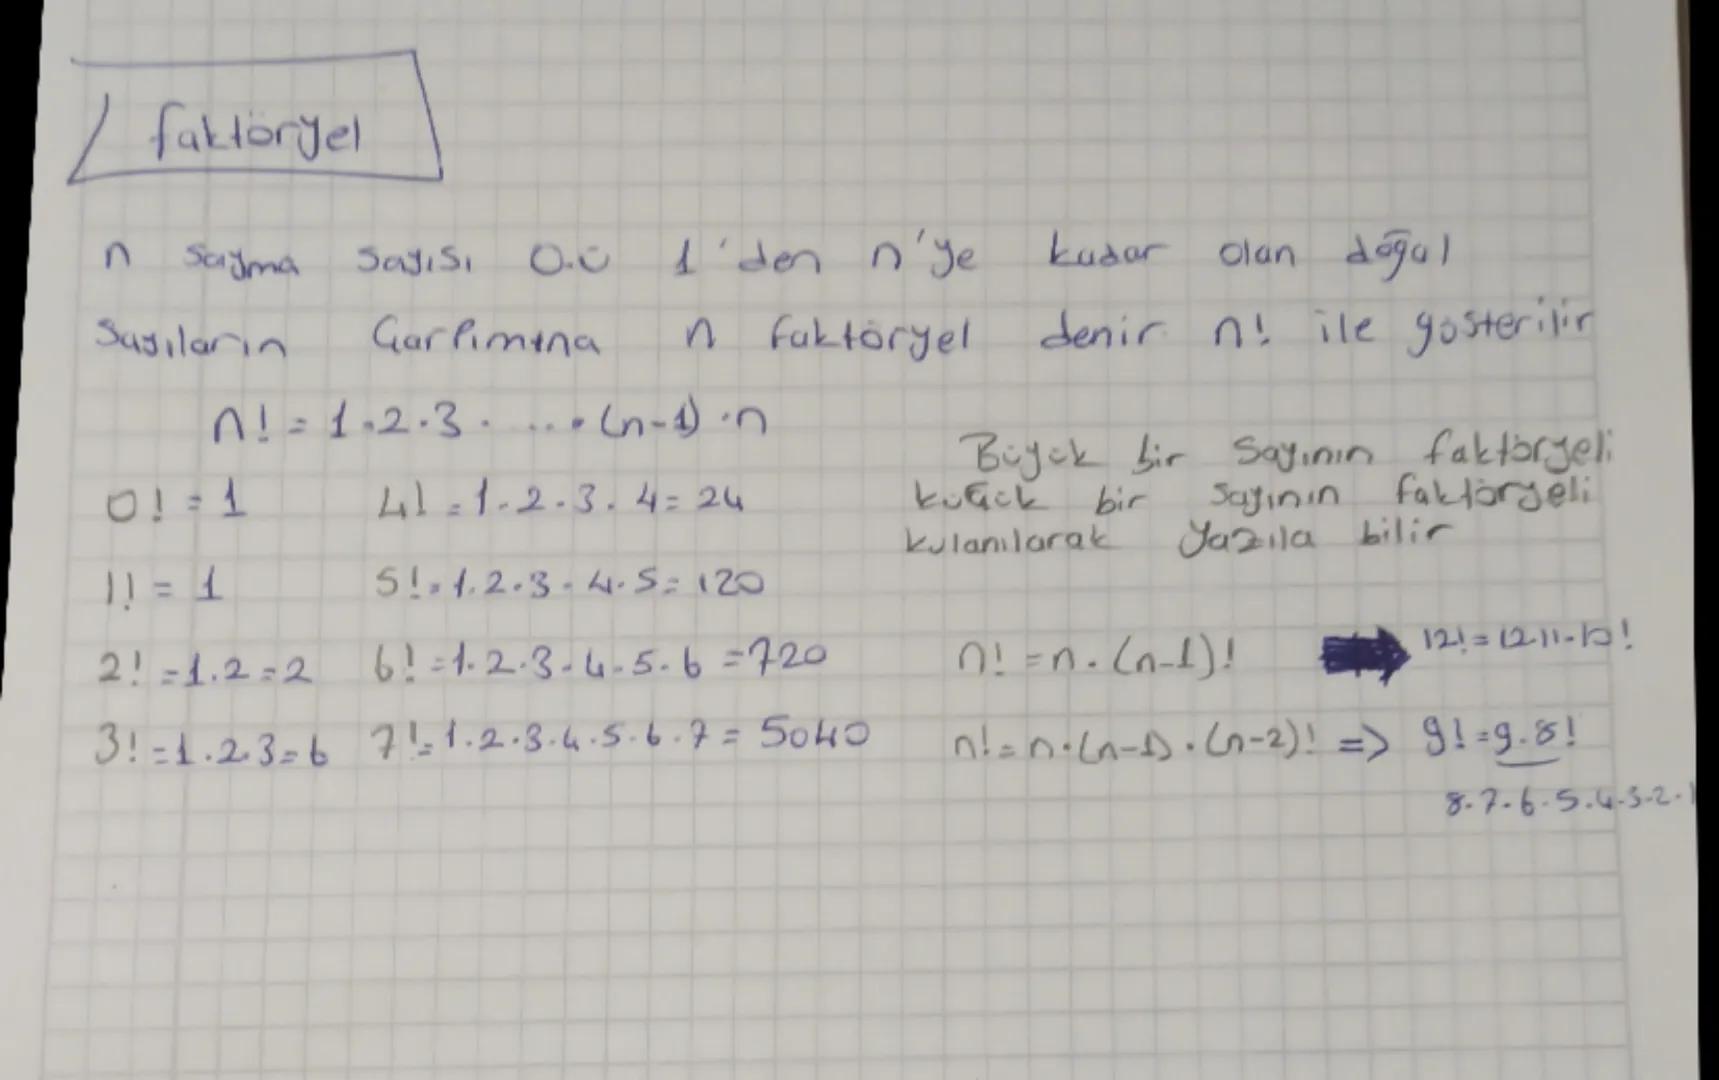 faktöryel
n sayma sayısı o.ü 1'den n'ye kadar olan doğal
sayıların Çarpımına n faktöryel denir n! ile gösterilir
n! = 1.2.3. ... . (n-1) .n
0! = 1
4! = 1.2.3.4 = 24
1! = 1
5! = 1.2.3.4.5 = 120
2! = 1.2 = 2
6! = 1.2.3.4.5.6 = 720
3! = 1.2.3 = 6
7! = 1.2.3.4.5.6.7 = 5040
Büyük bir sayının faktöryeli
küçük bir sayının faktöryeli
kulanılarak yazıla bilir
n! = n.(n-1)! 12! = 12.11.10!
n! = n.(n-1).(n-2)! => 9! = 9.8!
8.7.6.5.4.3.2.1